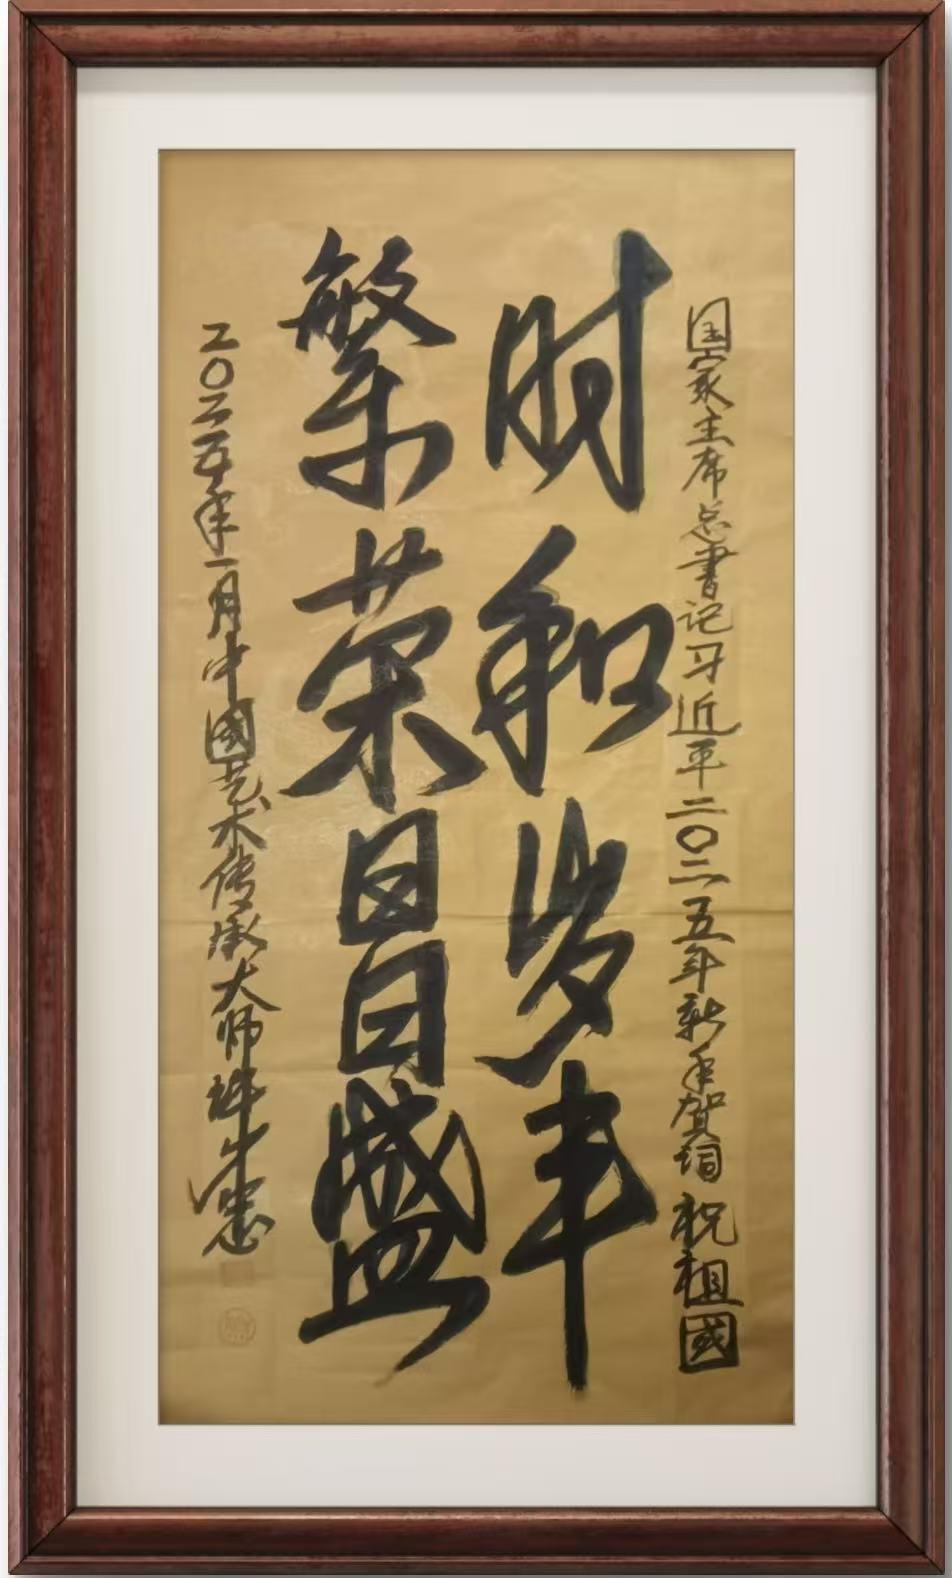 国家主席总书记习近平二〇二五年新年贺词祝祖國
时和岁丰
繁荣昌盛
二〇二五年一月中國艺术传承大师